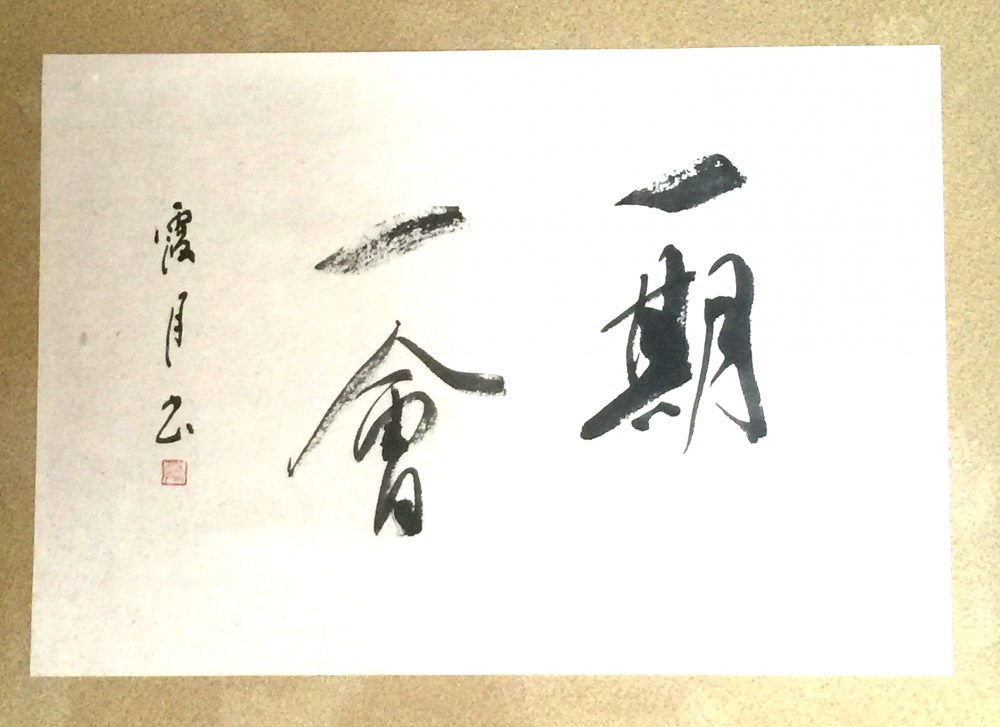 一期
一會
霞月书